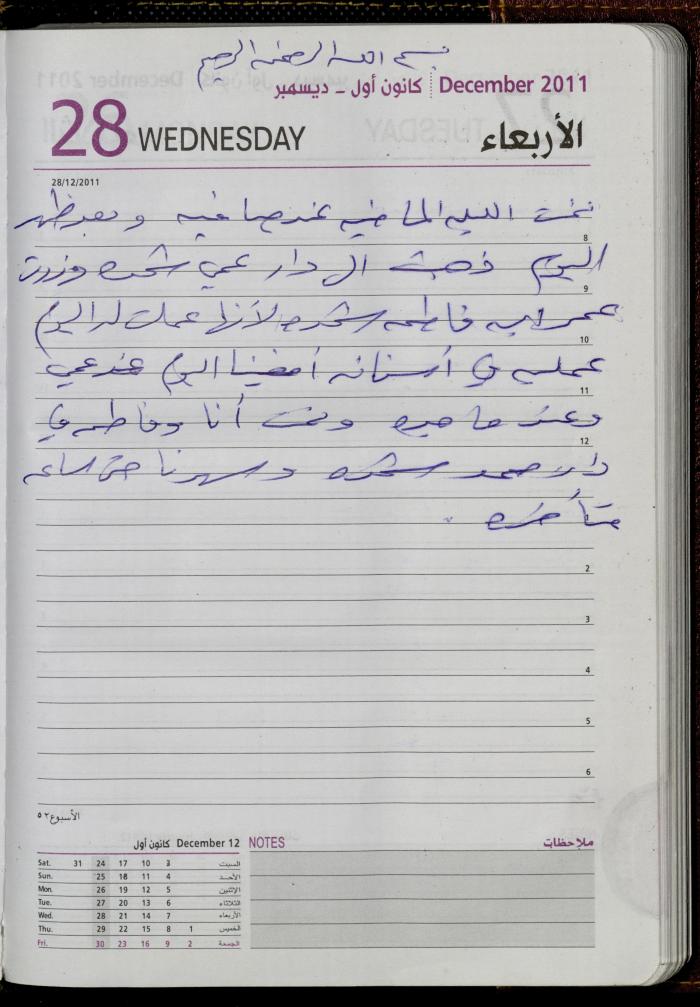 بسم الله الرحمن الرحيم
December 2011 كانون أول - ديسمبر
28 WEDNESDAY الأربعاء
28/12/2011
نمت الليله الماضيه عند صافيه وبعد ظهر
8
اليوم ذهبت ال دار عمي شحده وزرت
9
فاطمه شحده لأنها عملت له اليوم
10
عمليه في أسنانه أمضينا اليوم عند عمي
11
وعند ونمت أنا وفاطمه في
12
دار محمد شحده وسهرنا حتى ساعه
متأخره .
2
3
4
5
6
الأسبوع ٥٢
December 12 كانون أول
NOTES ملاحظات
Sat. 31 24 17 10 3 السبت
Sun. 25 18 11 4 الأحد
Mon. 26 19 12 5 الإثنين
Tue. 27 20 13 6 الثلاثاء
Wed. 28 21 14 7 الأربعاء
Thu. 29 22 15 8 1 الخميس
Fri. 30 23 16 9 2 الجمعة